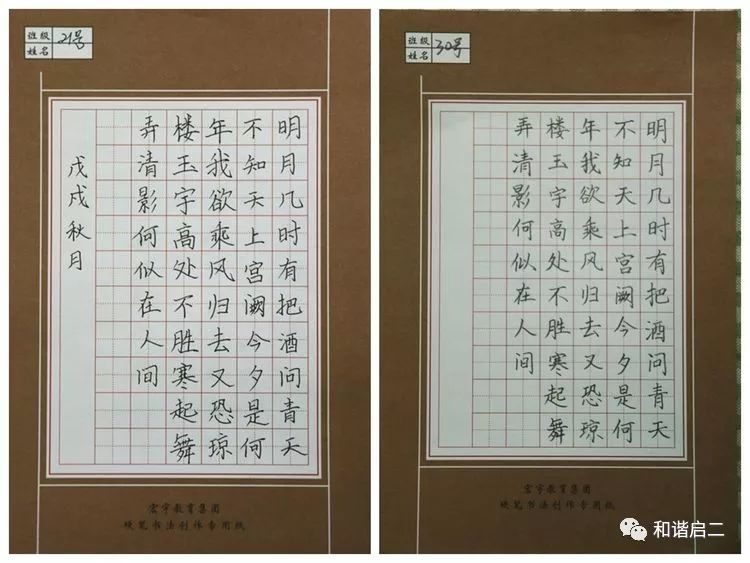 班级
姓名
21号
明月几时有把酒问青天
不知天上宫阙今夕是何
年我欲乘风归去又恐琼
楼玉宇高处不胜寒起舞
弄清影何似在人间
戊戌秋月
宏宇教育集团
硬笔书法创作专用纸
班级
姓名
30号
明月几时有把酒问青天
不知天上宫阙今夕是何
年我欲乘风归去又恐琼
楼玉宇高处不胜寒起舞
弄清影何似在人间
宏宇教育集团
硬笔书法创作专用纸
和谐启二